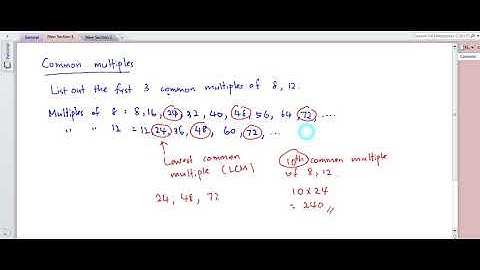 General New Section 1 New Section 2
Common multiples
List out the first 3 common multiples of 8, 12.
Multiples of 8 = 8, 16, 24, 32, 40, 48, 56, 64, 72, ....
" " 12 = 12, 24, 36, 48, 60, 72, ...
Lowest common
multiple (LCM)
24, 48, 72
10th common multiple
of 8, 12.
10 x 24
= 240